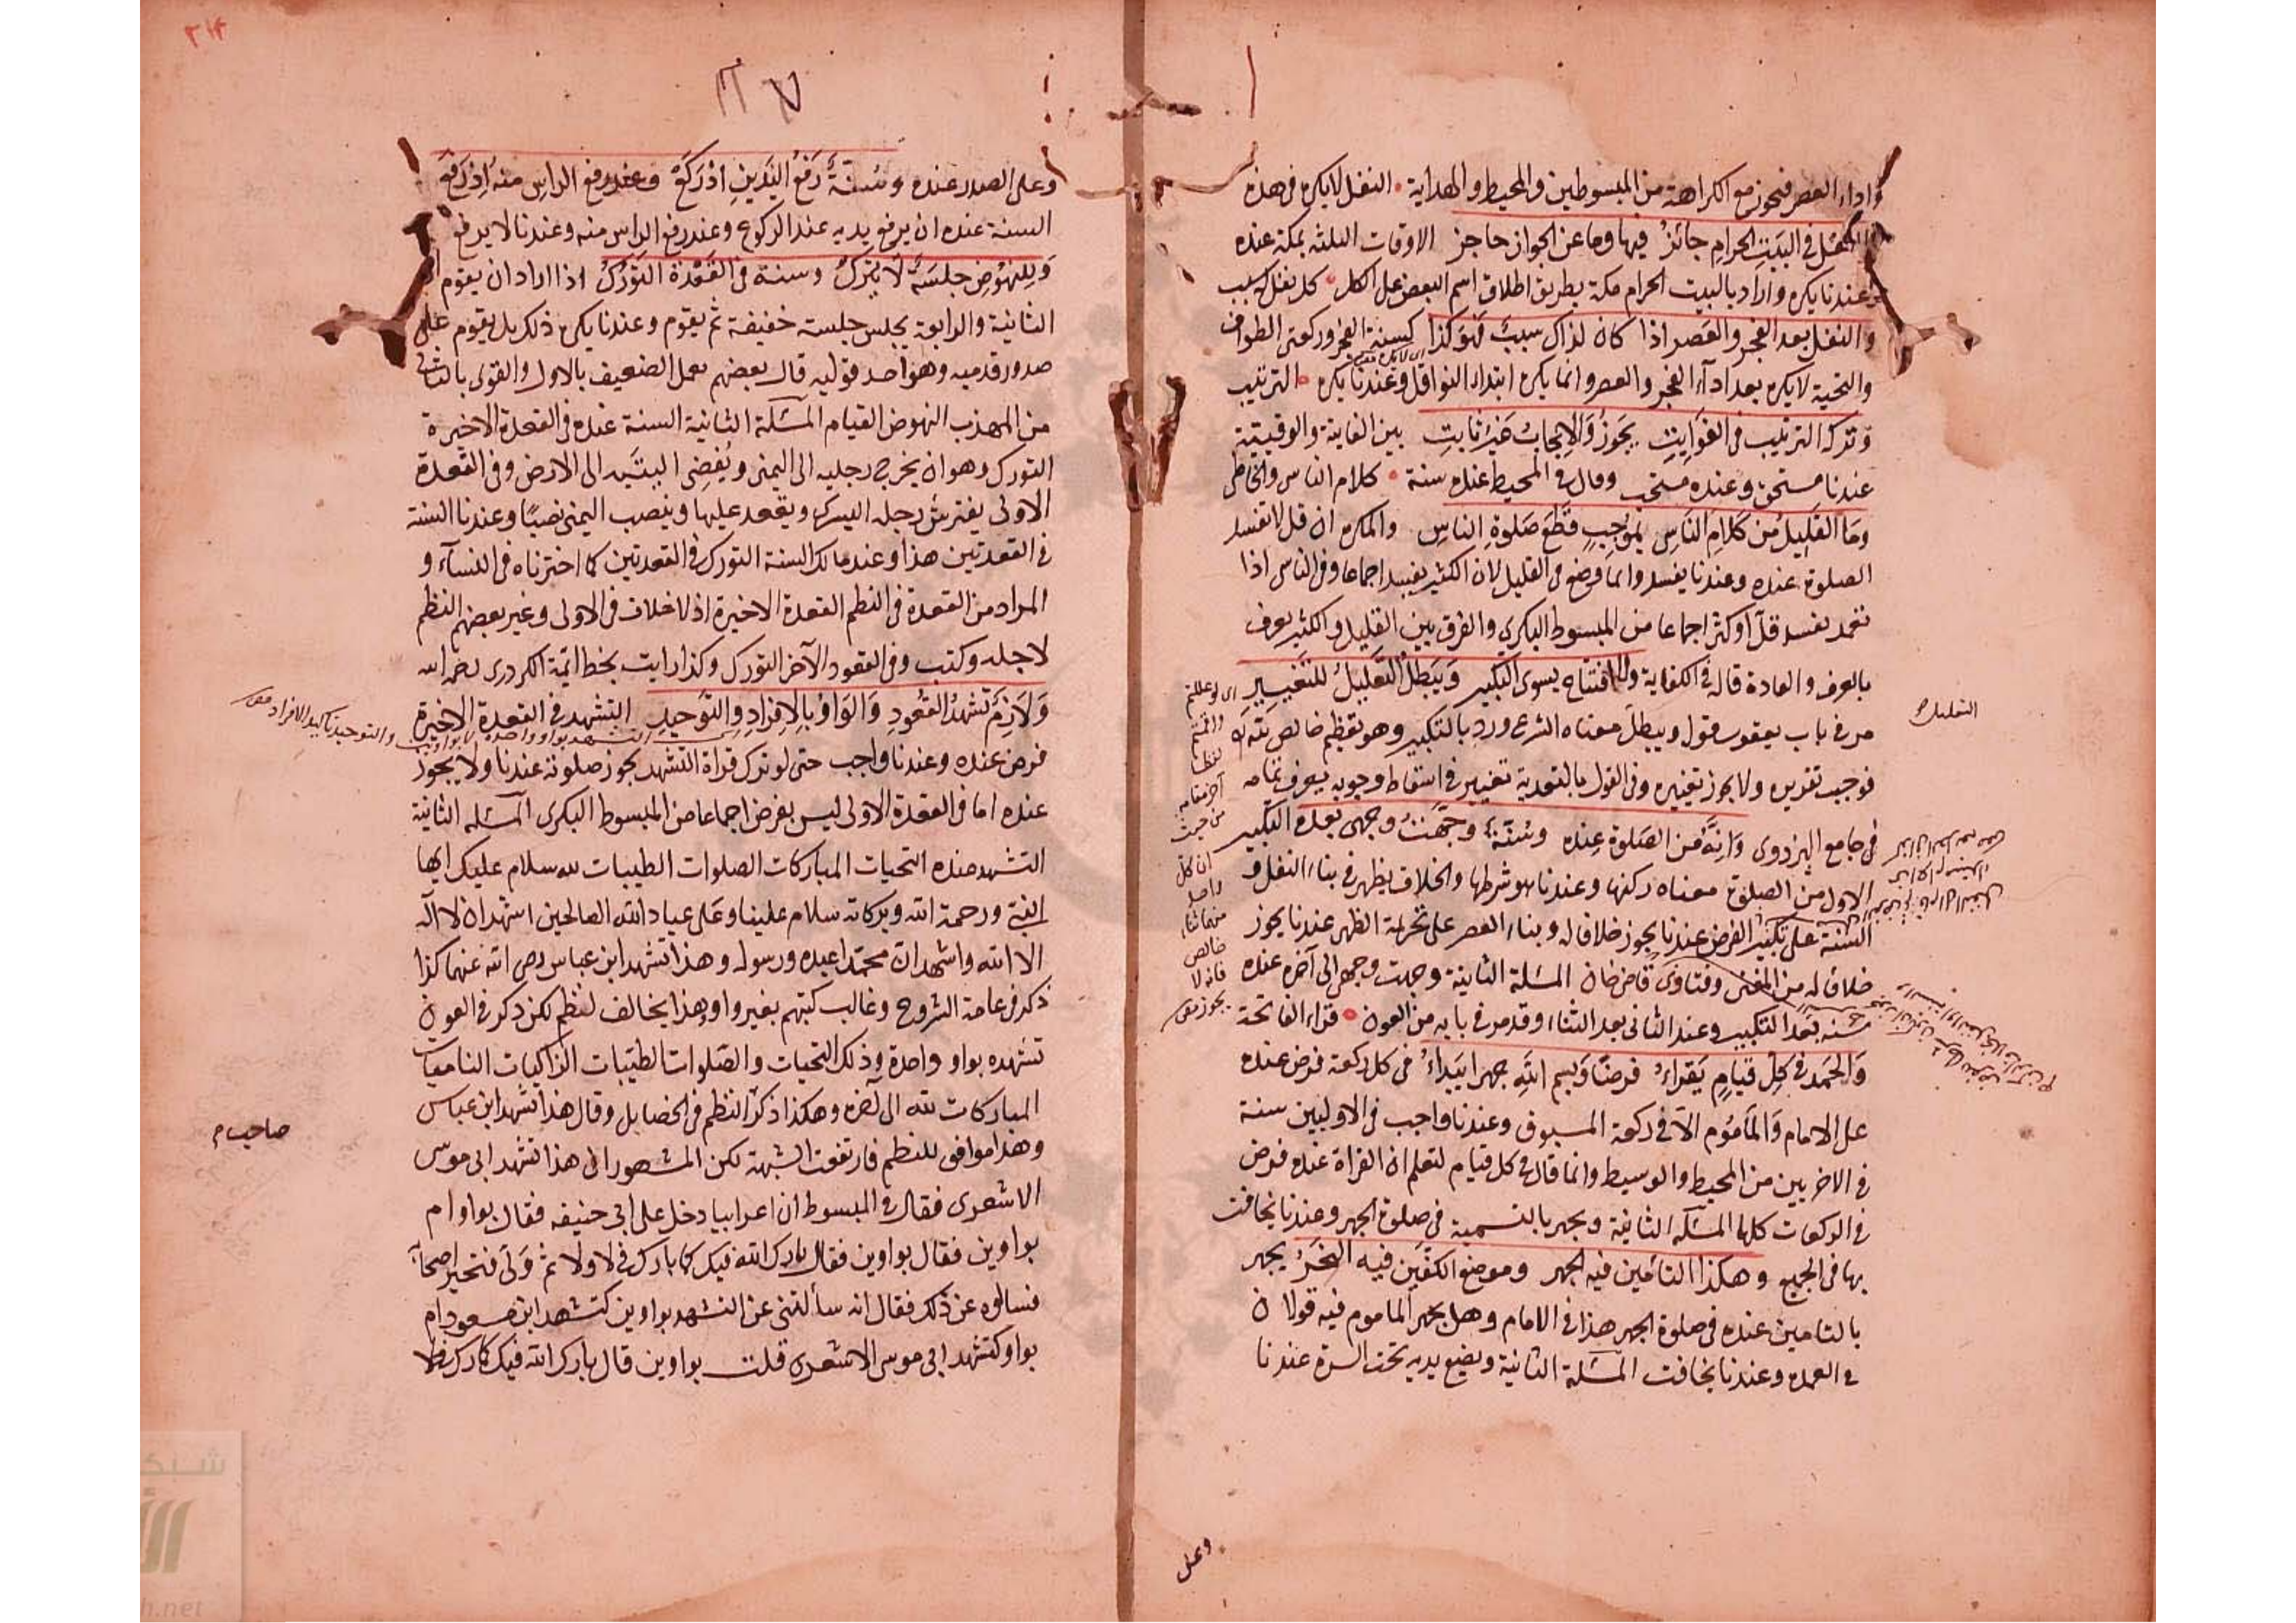 واداء العصر فيجوز مع الكراهة من المبسوطين والمحيط والهداية النفل لا يكره في هذه
النفل في البيت الحرام جائز فيها وما عن الجواز حاجز الاوقات الثلثة بمكة عنده
وعندنا يكره واراد بالبيت الحرام مكة بطريق اطلاق اسم البعض على الكل كل نفل له سبب
والنفل بعد الفجر والعصر اذا كان لذاك سبب فهو كذا كسنة الفجر وركعتي الطواف
والتحية لا يكره بعد اداء الفجر والعصر وانما يكره ابتداء النوافل وعندنا يكره الترتيب
وترك الترتيب في الفوايت يجوز والايجاب غير ثابت بين الفايتة والوقتية
عندنا مستحق وعنده مستحب وقال في المحيط عنده سنة كلام الناسي والخاطي
وما القليل من كلام الناس بموجب قطع صلوة الناس والمكره ان قل لا تفسد
الصلوة عنده وعندنا يفسد وانما وضع في القليل لان الكثير يفسد اجماعا وفي الناس اذا
تعمد تفسد قل او كثر اجماعا من المبسوط البكري والفرق بين القليل والكثير يعرف
بالعرف والعادة قاله في الكفاية والافتتاح بسوى التكبير ويبطل التعليل للتغيير
مر في باب يعقوب فقوله ويبطل معناه الشرع ورد بالتكبير وهو تعظيم خالص لله
فوجب تقديره ولا يجوز تغييره وفي القول بالتعدية تغيير في اسقاط وجوبه يعرف تمامه
في جامع البزدوي وانه من الصلوة عنده وسنة وجهت وجهي بعده التكبير
الاول من الصلوة معناه ركنها وعندنا هو شرطها والخلاف يظهر في بناء النفل و
السنة على تكبير الفرض عندنا يجوز خلافا له وبناء العصر على تحريمة الظهر عندنا يجوز
خلافا له من المغني وفتاوى قاضي خان المسئلة الثانية وجهت وجهي الى آخره عنده
سنة بعد التكبير وعند الثاني بعد الثناء وقد مر في بابه من العون قراءة الفاتحة
والحمد في كل قيام يقراء فرضا وبسم الله جهرا يبداء في كل ركعة فرض عنده
على الامام والماموم الا في ركعة المسبوق وعندنا واجب في الاوليين سنة
في الاخريين من المحيط والوسيط وانما قال في كل قيام لتعلم ان القراة عنده فرض
في الركعات كلها المسئلة الثانية ويجهر بالتسمية في صلوة الجهر وعندنا يخافت
بها في الجميع وهكذا التامين فيه الجهر وموضع الكفين فيه النحر يجهر
بالتامين عنده في صلوة الجهر هذا في الامام وهل يجهر الماموم فيه قولان
في العمدة وعندنا يخافت المسئلة الثانية ويضع يديه تحت السرة عندنا
التعليل
وعلى
وعلى الصدر عنده وسنة رفع اليدين اذ ركع وعند رفع الراس منه اذ رفع
السنة عنده ان يرفع يديه عند الركوع وعند رفع الراس منه وعندنا لا يرفع
وللنهوض جلسة لا يترك وسنة في القعدة التورك اذا اراد ان يقوم
الثانية والرابعة يجلس جلسة خفيفة ثم يقوم وعندنا يكره ذلك بل يقوم على
صدور قدميه وهو احد قوليه قال بعضهم يعمل الضعيف بالاول والقوى بالثاني
من المهذب النهوض القيام المسئلة الثانية السنة عنده في القعدة الاخيرة
التورك وهو ان يخرج رجليه الى اليمنى ويفضى اليتيه الى الارض وفي القعدة
الاولى يفترش رجله اليسرى ويقعد عليها وينصب اليمنى نصبا وعندنا السنة
في القعدتين هذا وعند مالك السنة التورك في القعدتين كما اخترناه في النساء و
المراد من القعدة في النظم القعدة الاخيرة اذ لا خلاف في الاولى وغير بعضهم النظم
لاجله وكتب وفي القعود الآخر التورك وكذا رايت بخط ائمة الكردرى رحمه الله
ولازم تشهد القعود والواو بالافراد والتوحيد التشهد في القعدة الاخيرة
فرض عنده وعندنا واجب حتى لو ترك قراة التشهد يجوز صلوته عندنا ولا يجوز
عنده اما في القعدة الاولى ليس بفرض اجماعا من المبسوط البكرى المسئلة الثانية
التشهد عنده التحيات المباركات الصلوات الطيبات لله سلام عليك ايها
النبى ورحمة الله وبركاته سلام علينا وعلى عباد الله الصالحين اشهد ان لا اله
الا الله واشهد ان محمدا عبده ورسوله وهذا تشهد ابن عباس رضى الله عنهما كذا
ذكر في عامة الشروح وغالب كتبهم بغير واو وهذا يخالف لنظم لكن ذكر في العون
تشهده بواو واحدة وذلك التحيات والصلوات الطيبات الزاكيات الناميات
المباركات لله الى آخره وهكذا ذكر النظم في الخصايل وقال هذا تشهد ابن عباس
وهذا موافق للنظم فارتفعت الشبهة لكن المشهور ان هذا تشهد ابى موسى
الاشعرى فقال في المبسوط ان اعرابيا دخل على ابى حنيفه فقال بواو ام
بواوين فقال بواوين فقال بارك الله فيك كما بارك في لا ولا ثم ولى فتحير اصحابه
فسالوه عن ذلك فقال انه سألتنى عن التشهد بواوين كتشهد ابن مسعود ام
بواو كتشهد ابى موسى الاشعرى قلت بواوين قال بارك الله فيك كما بارك في لا
صاحب